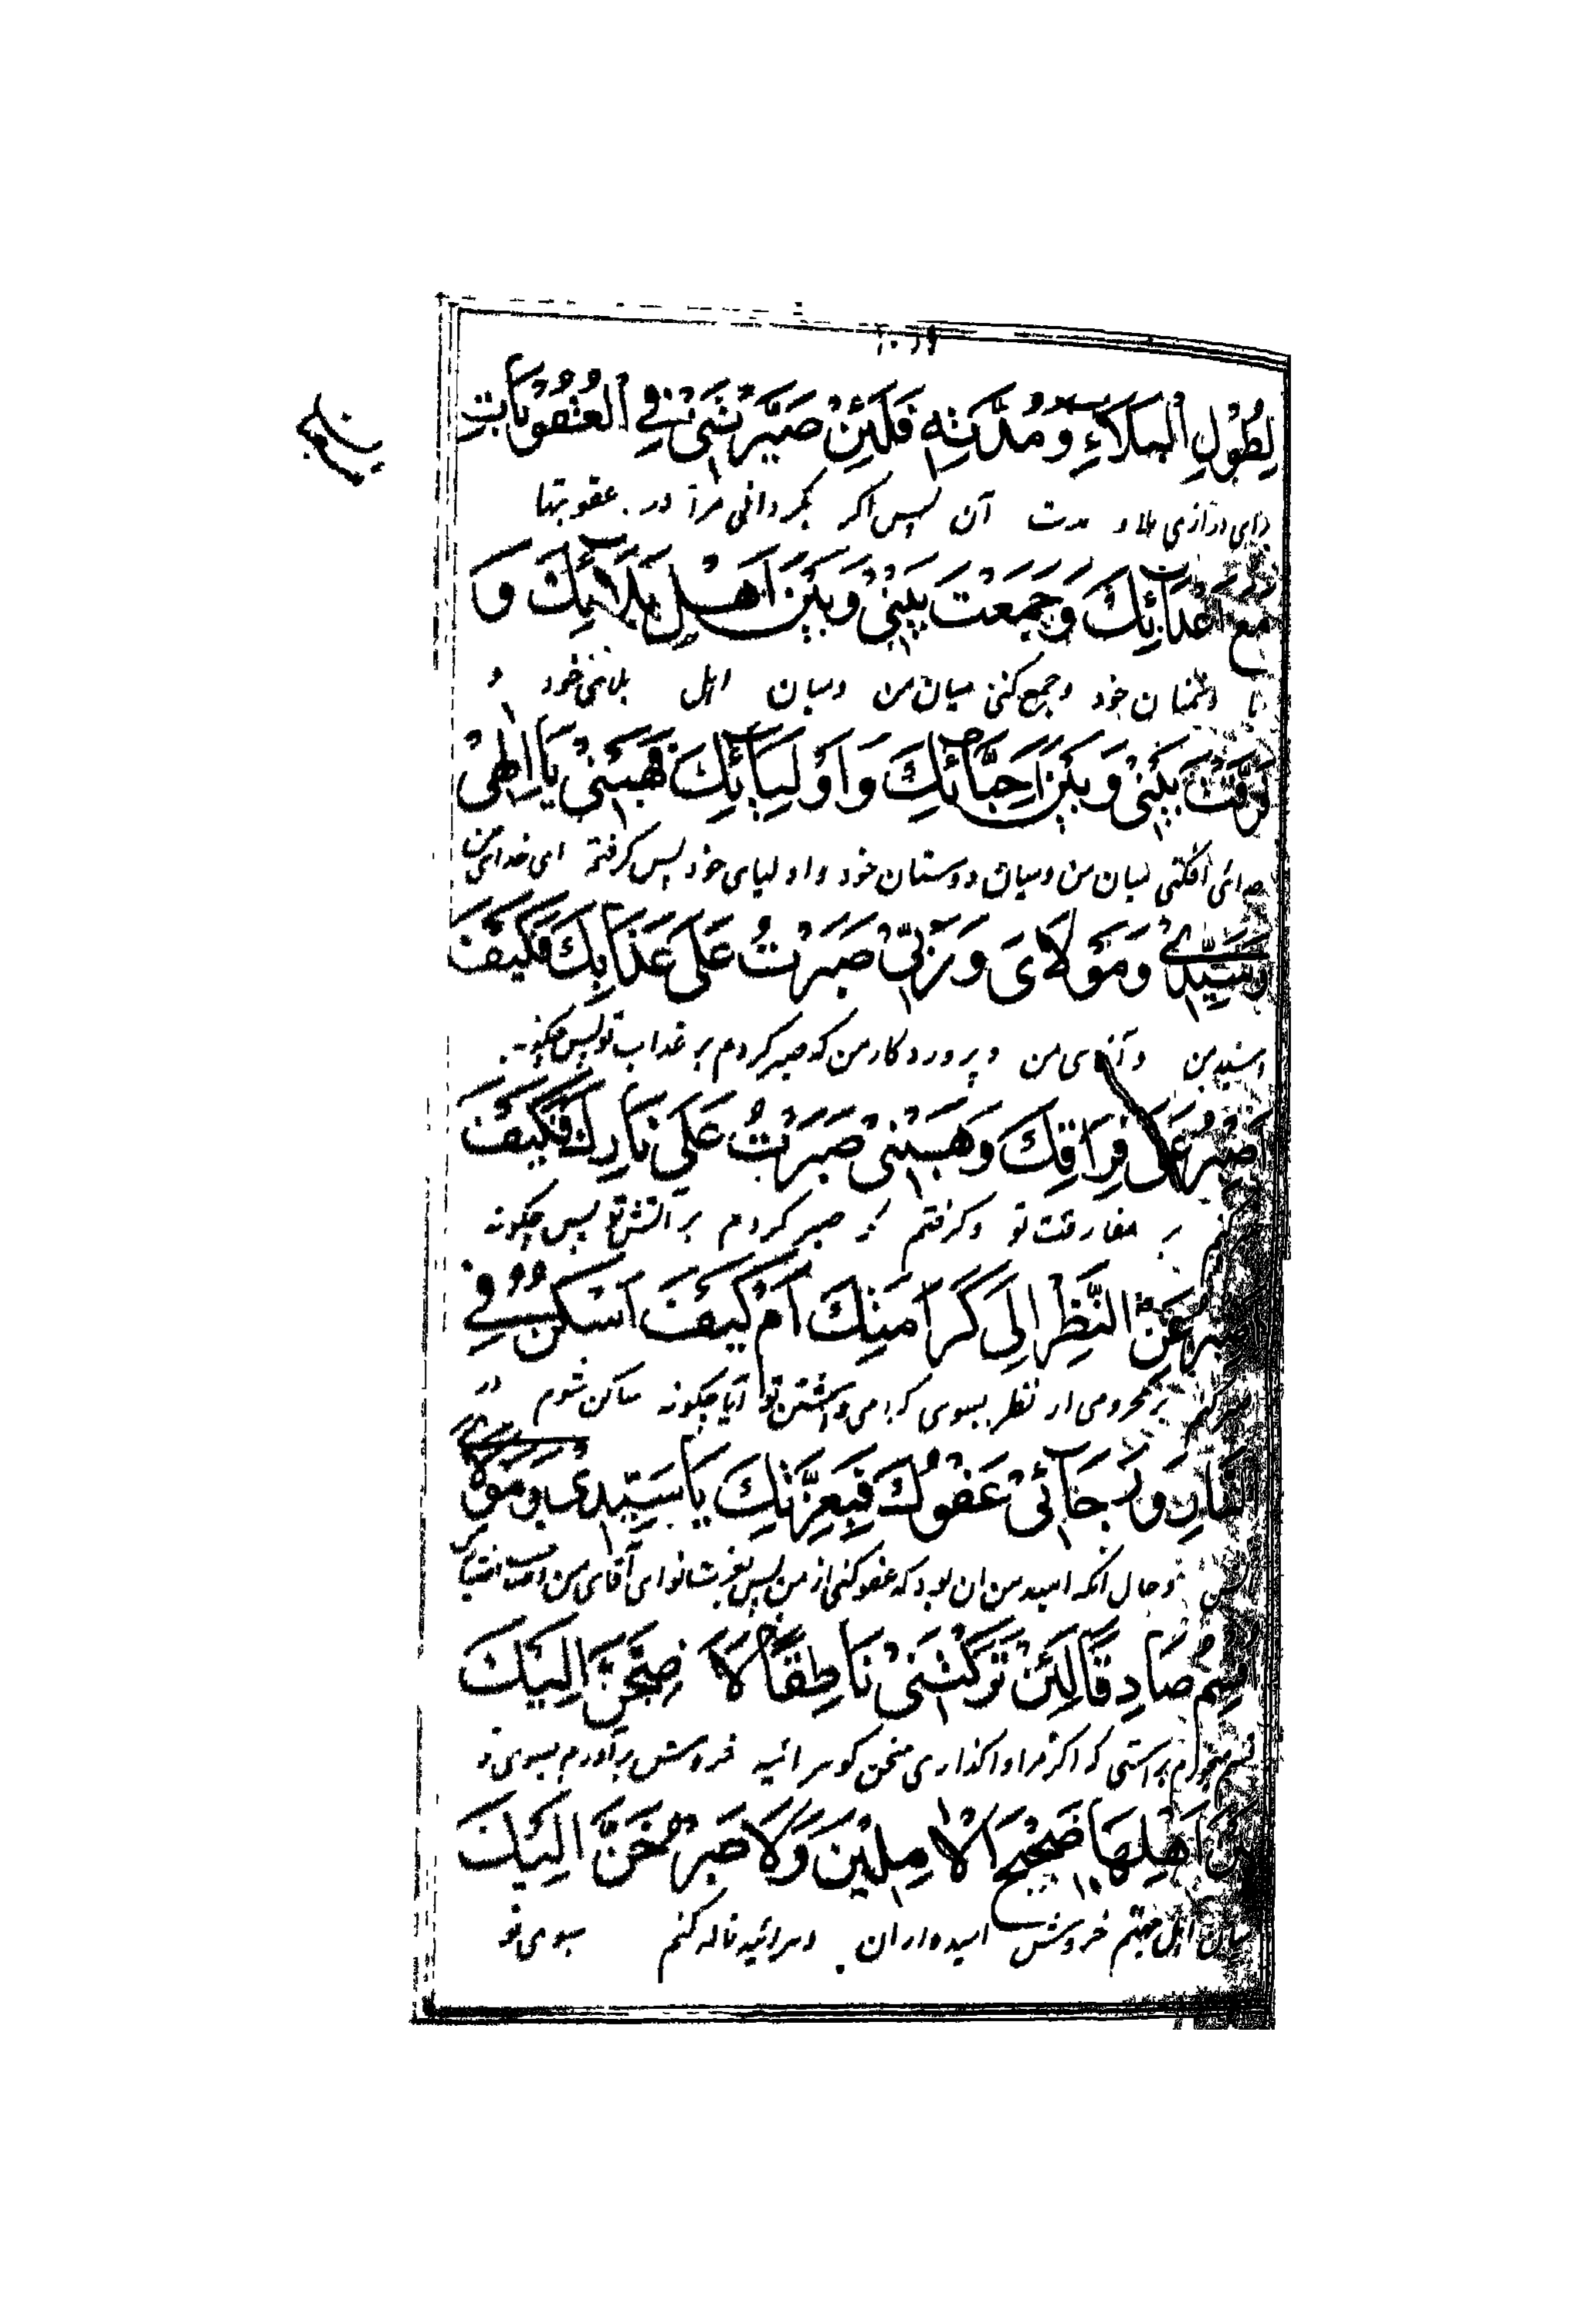 لِطُولِ الْبَلَاءِ وَ مُدَّتِهِ فَلَئِنْ صَيَّرْتَنِي فِي الْعُقُوبَاتِ
درازی بلا و مدت آن پس اکر بکردانی مرا در عقوبتها
مَعَ اَعْدَائِكَ وَجَمَعْتَ بَيْنِي وَبَيْنَ اَهْلِ بَلَائِكَ وَ
با دشمنان خود وجمع کنی میان من ومیان اهل بلای خود و
فَرَّقْتَ بَيْنِي وَبَيْنَ اَحِبَّائِكَ وَاَوْلِيَائِكَ فَهَبْنِي يَا اِلٰهِي
جدائی افکنی میان من ومیان دوستان خود و اولیای خود پس کرفتم ای خدای من
وَسَيِّدِي وَمَوْلَايَ وَرَبِّي صَبَرْتُ عَلَى عَذَابِكَ فَكَيْفَ
وآقای من و پروردکار من که صبر کردم بر عذاب تو پس چکونه
اَصْبِرُ عَلَى فِرَاقِكَ وَهَبْنِي صَبَرْتُ عَلَى نَارِكَ فَكَيْفَ
کنم بر مفارقت تو وکرفتم که صبر کردم بر آتش تو پس چکونه
اَصْبِرُ عَنِ النَّظَرِ اِلَى كَرَامَتِكَ اَمْ كَيْفَ اَسْكُنُ فِي
صبر کنم بر محرومی از نظر بسوی کرامی داشتن تو آیا چکونه ساکن شوم در
النَّارِ وَرَجَائِي عَفْوُكَ فَبِعِزَّتِكَ يَا سَيِّدِي وَمَوْلَايَ
وحال آنکه امید من ان بود که عفو کنی از من پس بعزت تو ای آقای من
اُقْسِمُ صَادِقًا لَئِنْ تَرَكْتَنِي نَاطِقًا لَاَضِجَّنَّ اِلَيْكَ
قسم میخورم براستی که اکر مرا واکذاری سخن کو هرآئینه خروش برآورم بسوی تو
بَيْنَ اَهْلِهَا ضَجِيجَ الْاٰمِلِينَ وَلَاَصْرُخَنَّ اِلَيْكَ
میان اهل جهنم خروش امیدواران وهرآئینه ناله کنم بسوی تو